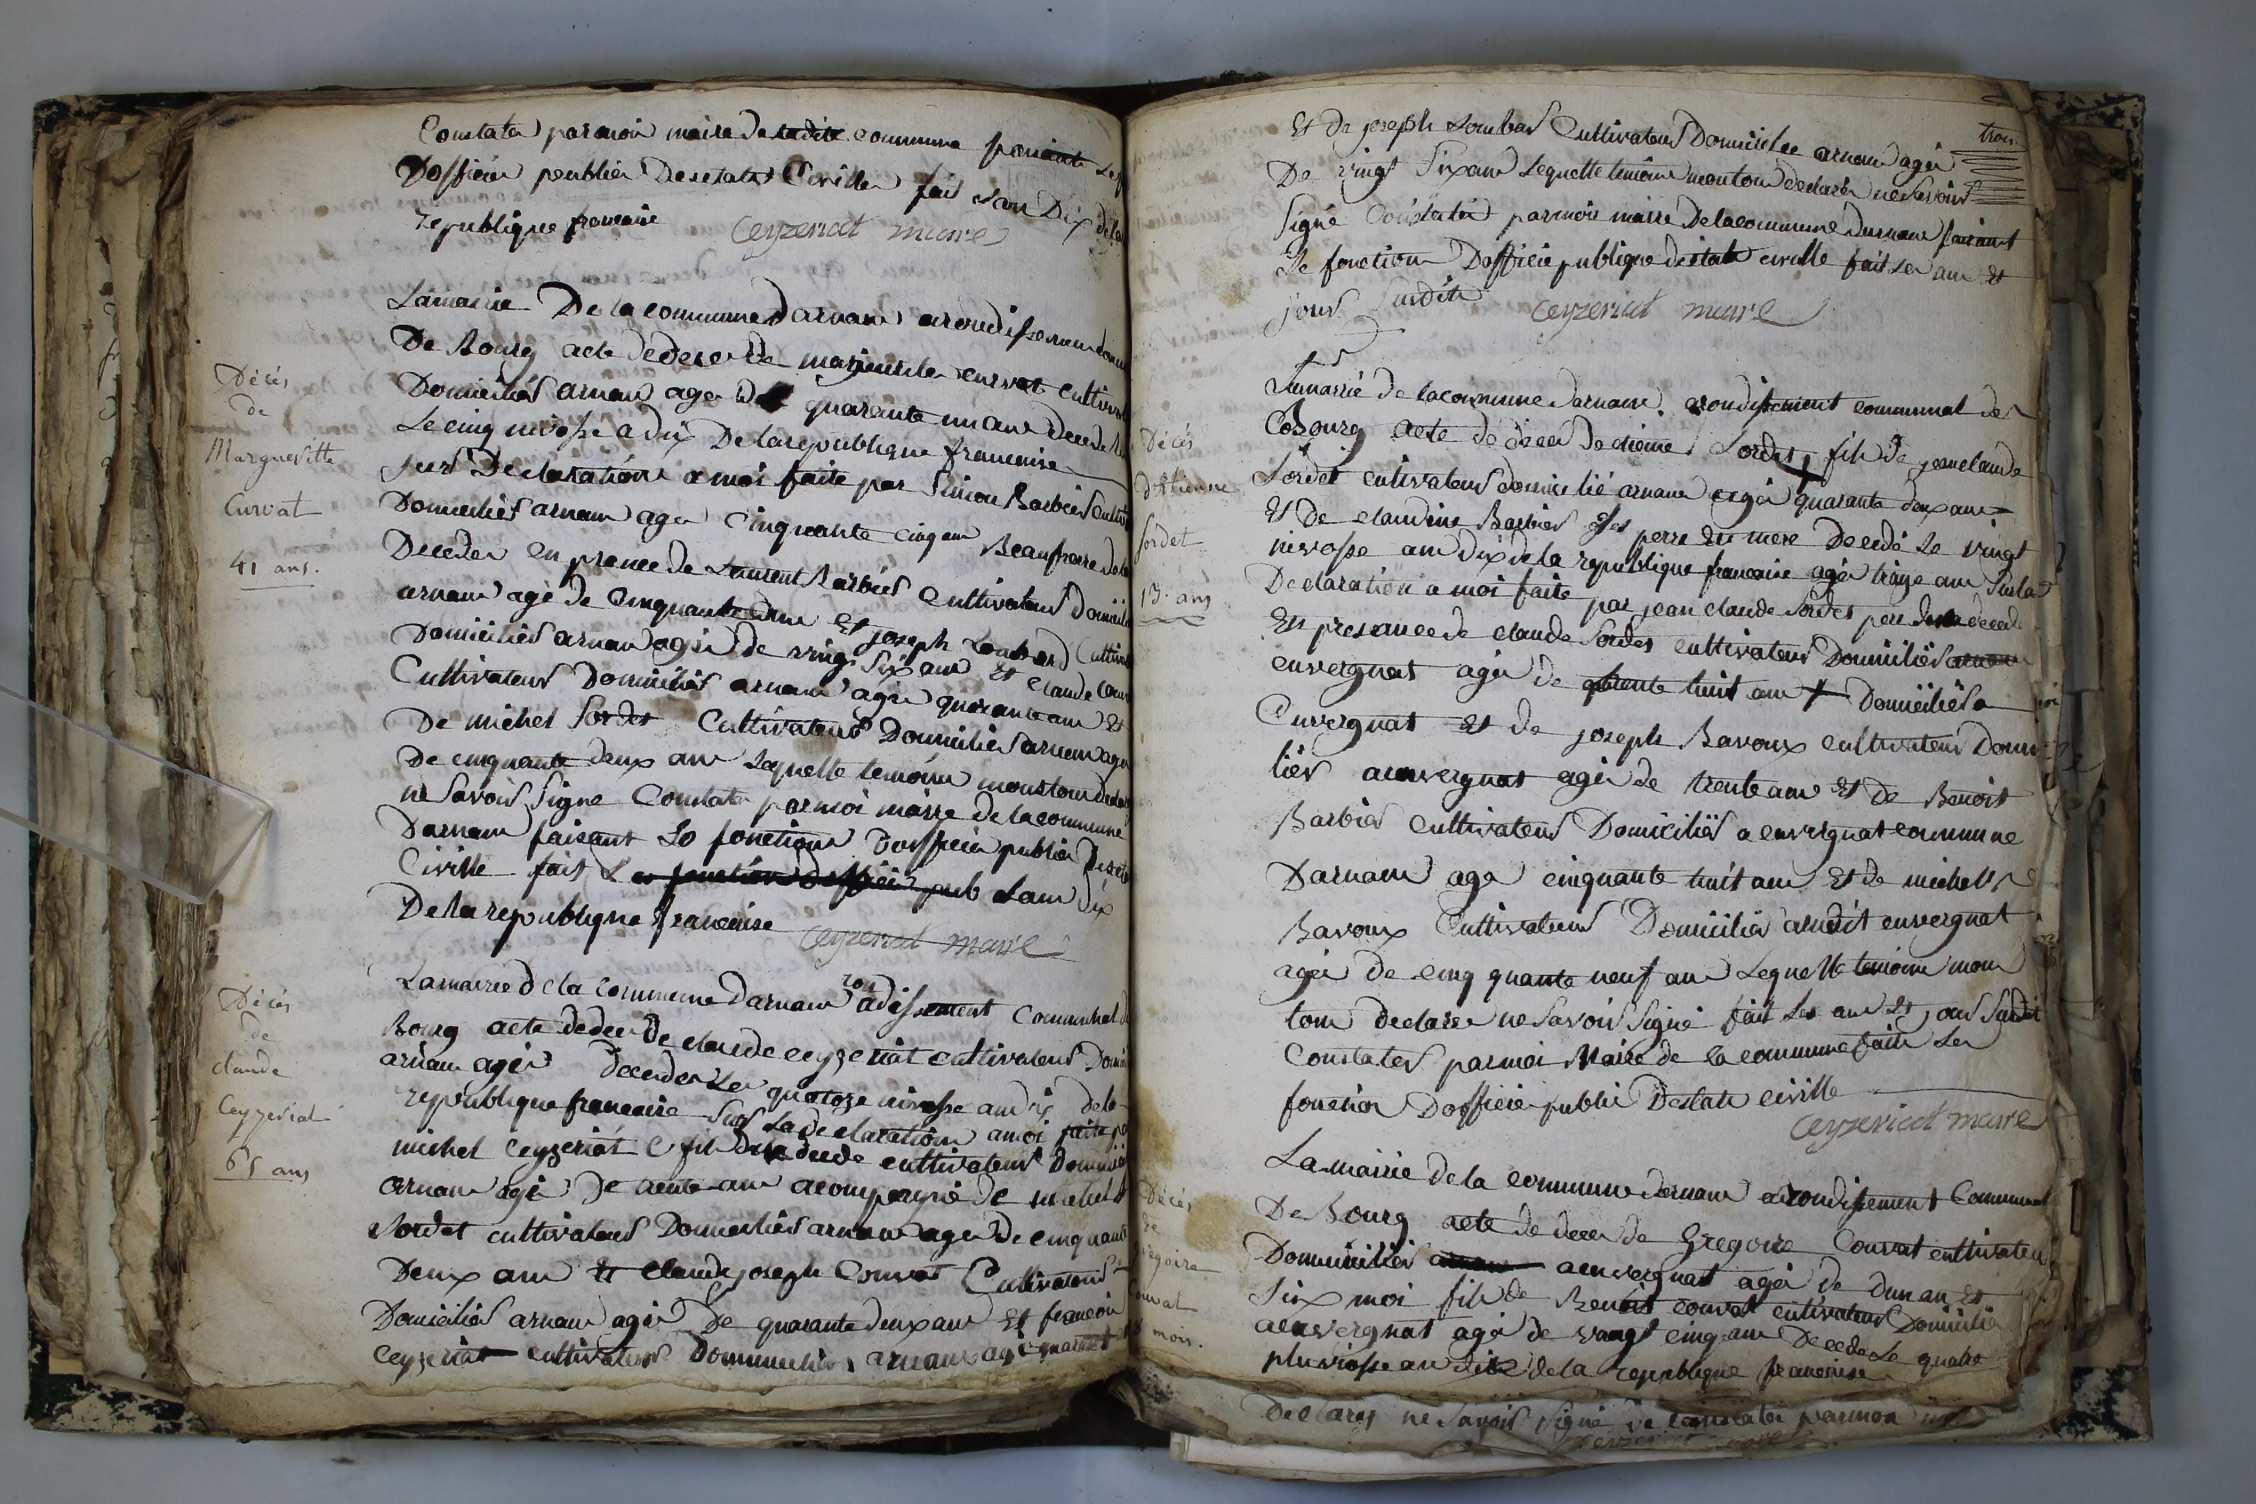 Constater par moi maire de ladite commune faisante les
Dofficier peublier Desetates Civiller fait l'ans Dix de la
republique francaise
Ceyzeriat maire
Lamairie De la commune Darnans arondissement
De Bourg acte de deces de margueritte curvat cultiv
Domiciliés arnans ager de quarante un ans decede
Le cinq nivosse a dix De la republique francaise
Décés
de
Margueritte
Curvat
41 ans.
surs Declaration a moi faite par Simon Barbier cultiv
Domiciliés arnans ager cinquante cinq ans Beaufrere de
Deceder en presence de Laurent Barbier cultivateur domicil
arnans agé de Cinquante et joseph Loubard Cultiv
Domiciliés arnans agér de vingt six ans et claude
Cultivateur Domiciliés arnans agér quarante ans et
De michel Sordet Cultivateurs Domiciliés arnans ager
De cinquante deux ans Lequelle temoins monstous declar
ne Savoir Signe Constater par moi maire de la commune
Darnans faisant Lo fonctions Dofficier publier
Civille fait L es fonction dofficier pub Lans dix
De la republique francaise
Ceyzeriat maire
Lamairie de la commune Darnans ron adissement Communal d
Bourg acte de deces De claude ceyzeriat cultivateur Domi
arnans agér Deceder Le quatoze nivosse an dix de la
republique francaise Sur La declaration a moi faite p
Décés
de
claude
Ceyzeriat
65 ans
michel Ceyzeriat fils De decede cultivateur Domicil
arnans agér De trente ans acompagnié de michel
Sordet cultivateur Domiciliés arnans agér De cinquante
Deux ans Et claude joseph Convat Cultivateur
Domiciliés arnans agér De quarante deux ans Et francois
Ceyzeriat cultivateur Domicilier arnans
Et De joseph Loubar Cultivateur Domicilee arnans agér
trois
De vingt six ans Lequelle temoins montous declarér ne Savoir
Signé Constatér par moi maire De la commune Darnans faisant
Le fonctions Dofficie publique destate civille fait Les ans Et
jour Surdits
Ceyzeriat maire
Lamairié de la commune Darnans arondissement communal de
Bourg acte de deces De etienne Sordet fils de jean claude
Sordet cultivateur domicilié arnans agér quarante deux ans
Et De claudine Barbier Ses perre Et mere Decedé Le vingt
nivosse an Dix de la republique francaise agér traize ans Sur la
Décés
d'Etienne
Sordet
13 ans
Declaration a moi faite par jean claude Sordet pere decede
En presance de claude Sordet cultivateur Domiciliés arnans
envergnat agér de trente huit ans Domiciliés a
Envergnat Et de joseph Bavoux cultivateur Domi
liés aenvergnat agér de trente ans Et De Benoit
Barbier cultivateur Domiciliés a envergnat commune
Darnans agé cinquante huit ans Et de michel
Bavoux Cultivateur Domicilié audit envergnat
agér de cinq quante neuf ans Lequelle temoins mon
tous declarer ne Savoir Signé fait Les ans Et jour Surdit
Constater par moi Maire de la commune fait Les
fonction Dofficie publié Destate civille
Ceyzeriat maire
La mairie de la commune Darnans arondissement Communal
De Bourg acte de deces de Gregoire Convat cultivateu
Domicilier arnans aenvergnat agér de d'un an Et
Six moi fils de Benoit convat cultivateur Domicilié
aenvergnat agér de vingt cinq ans Decede Le quatre
pluviosse an dix de la republique francaise
Décés
de
Gregoire
Convat
mois.
Declarer ne Savoir signé Constater par moi